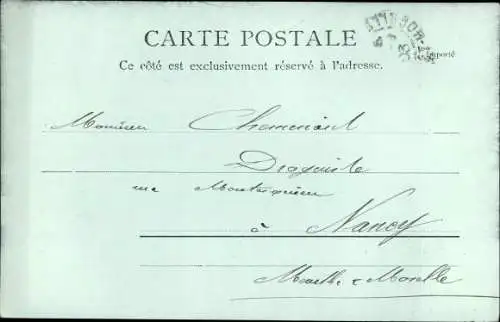 CARTE POSTALE
Ce côté est exclusivement réservé à l'adresse.
Monsieur Chemenaud
Droguiste
rue Montesquieu
à Nancy
Meurthe & Moselle